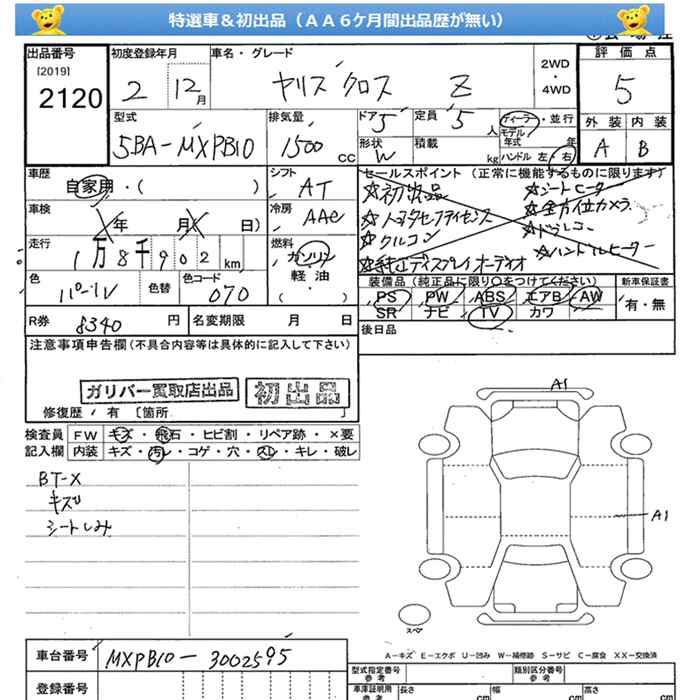 特選車＆初出品（ＡＡ６ケ月間出品歴が無い）
出品番号 初度登録年月 車名・グレード 2WD ・ 4WD 評価点
[2019]
2120 2 12月 ヤリス クロス Z 5
型式 排気量 ドア 5 定員 5 人 ディーラー・並行 外装 内装
5BA-MXPB10 1500 CC 形状 W 積載 kg モデル年式 年 A B
ハンドル 左・右
車歴 シフト セールスポイント（正常に機能するものに限ります）
自家用・( ) AT ☆初出品 ☆シートヒーター
車検 年 月 日) 冷房 AAC ☆トヨタセーフティセンス ☆全方位カメラ
☆クルコン ☆ドラレコ
走行 1万8千902km 燃料 ガソリン 軽・油 ・( ) ☆純正ディスプレイオーディオ ☆ハンドルヒーター
色 パール 色替 色コード 070 装備品（純正品に限り○をつけてください） 新車保証書
PS PW ABS エアB AW 有・無
SR ナビ TV カワ
R券 8340 円 名変期限 月 日 後日品
注意事項申告欄(不具合内容等は具体的に記入して下さい)
ガリバー買取店出品 初出品
修復歴 ・ 有 〔箇所 〕
検査員 FW キズ・飛石・ヒビ割・リペア跡・×要
記入欄 内装 キズ・汚レ・コゲ・穴・スレ・キレ・破レ
BT-X
キズ
シートしみ
A1
A1
スペア
A－キズ E－エクボ U－凹み W－補修跡 S－サビ C－腐食 XX－交換済
車台番号 MXPB10-3002595 型式指定番号 参考 類別区分番号 参考
登録番号 車庫証明用 参考 長さ cm 幅 cm 高さ cm